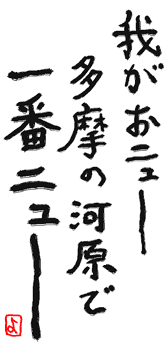 我がおニュー
多摩の河原で
一番ニュー
よ